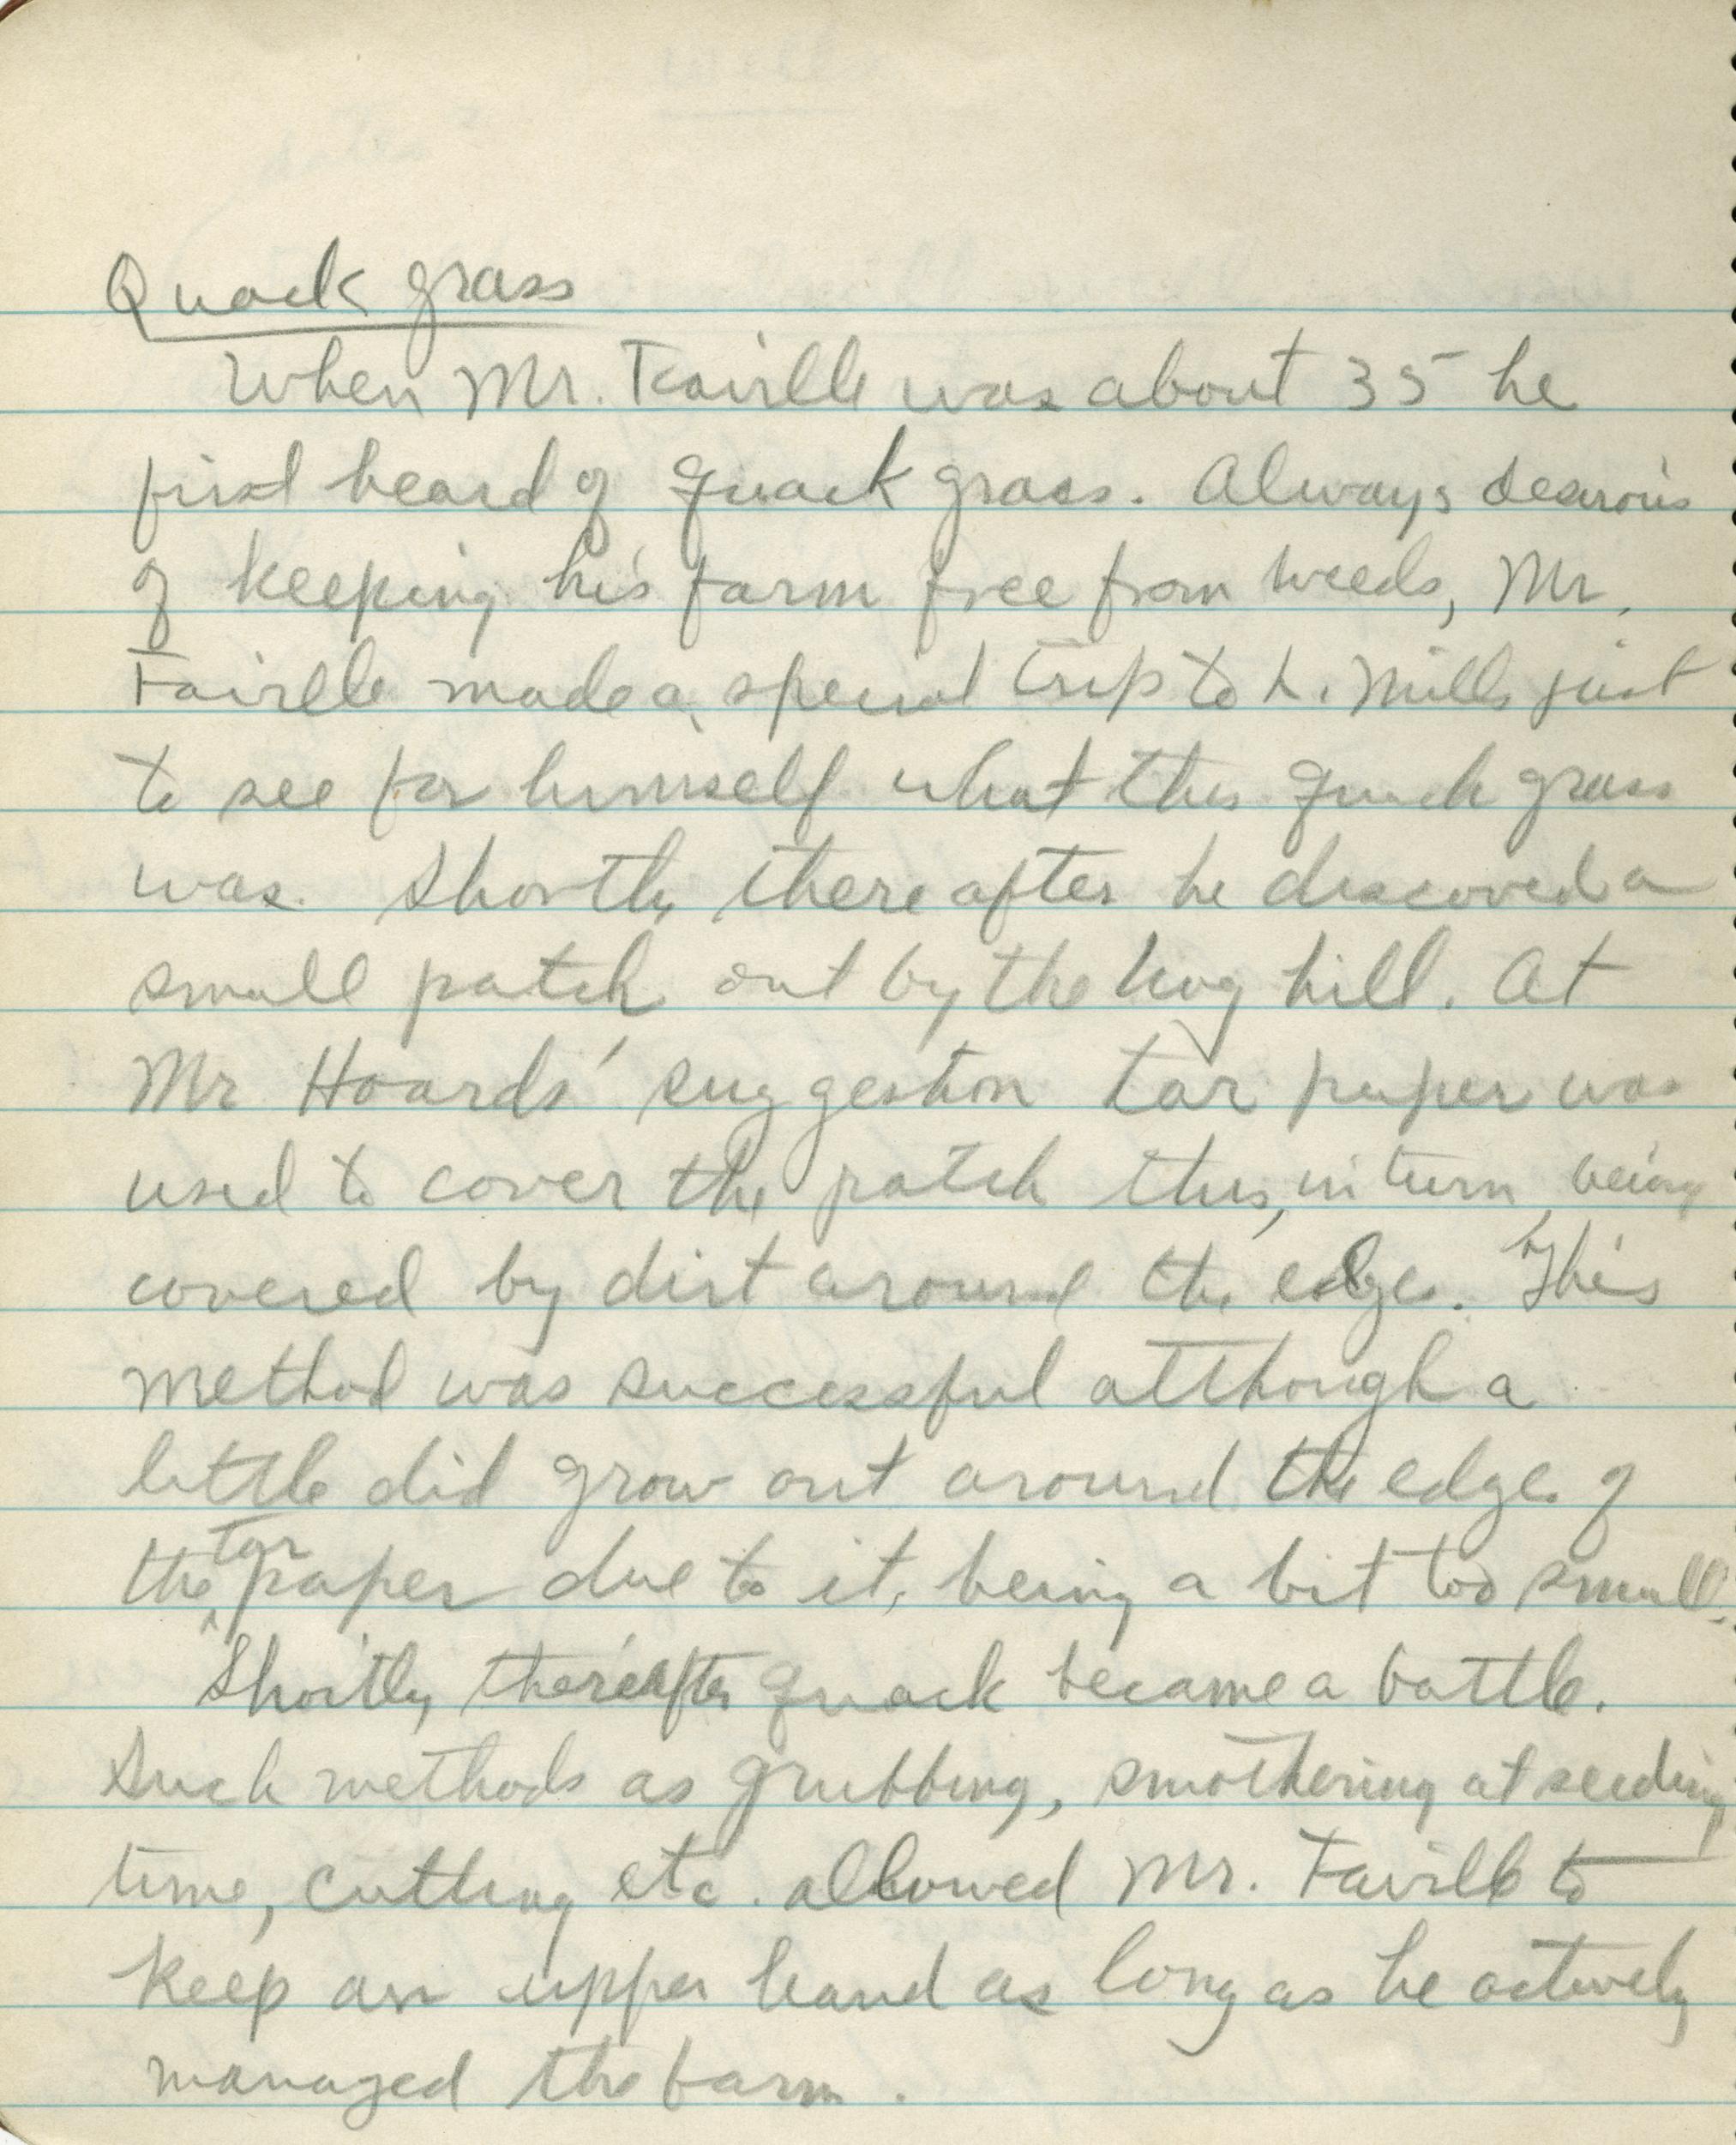 Quack grass
When Mr. Faville was about 35 he
first heard of quack grass. Always desirous
of keeping his farm free from weeds, Mr.
Faville made a special trip to L. Mills just
to see for himself what this quack grass
was. Shortly thereafter he discoved a
small patch out by the hog hill. At
Mr Hoards' suggestion tar paper was
used to cover the patch this, in turn, being
covered by dirt around the edge. This
method was successful although a
little did grow out around the edge of
the tar paper due to it, being a bit too small.
Shortly thereafter quack became a battle.
Such methods as grubbing, smothering at seeding
time, cutting etc. allowed Mr. Faville to
keep an upper hand as long as he actively
managed the farm.